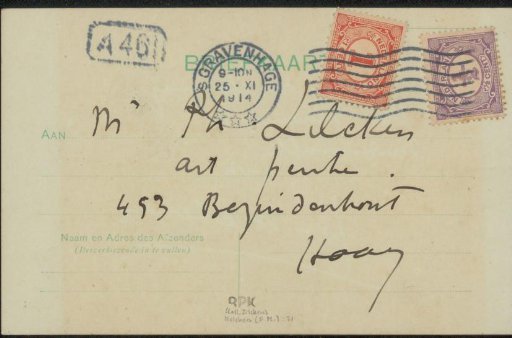 A46
BRIEFKAART
'S GRAVENHAGE
9-10N
25 · XI
1914
1
AAN
Mr Ph Zilcken
art peintre.
493 Bezuidenhout
Haag
Naam en Adres des Afzenders
(Desverkiezende in te vullen)
RPK